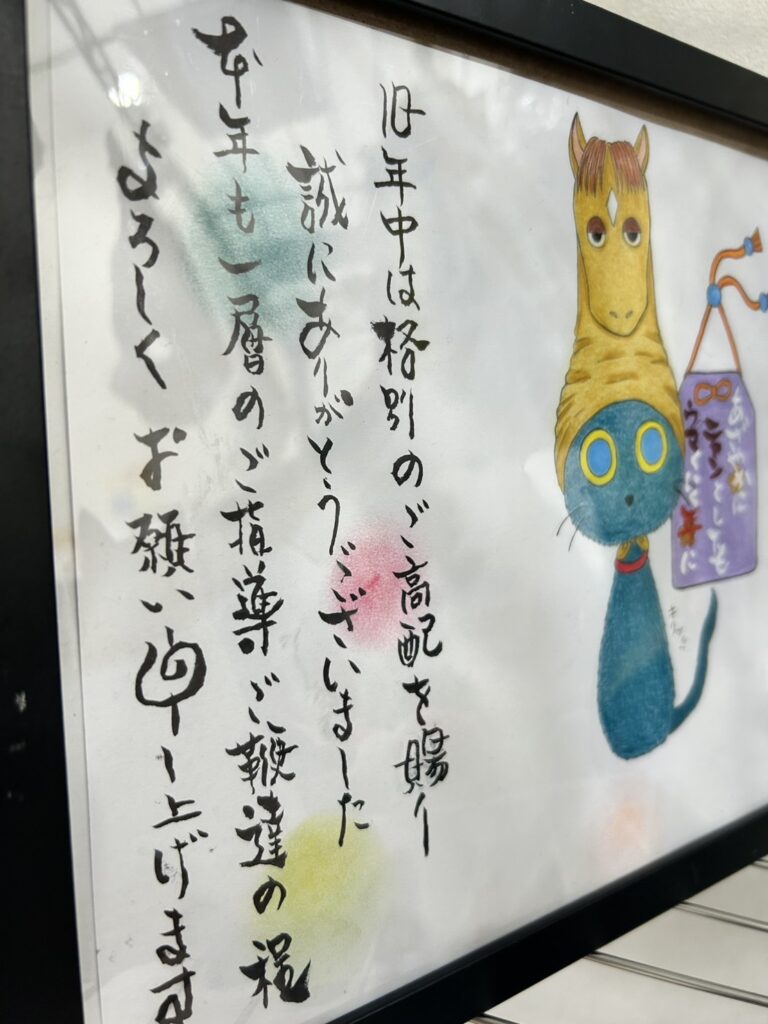 ニャンとしても
旧年中は格別のご高配を賜り
誠にありがとうございました
本年も一層のご指導ご鞭達の程
よろしくお願い申し上げます